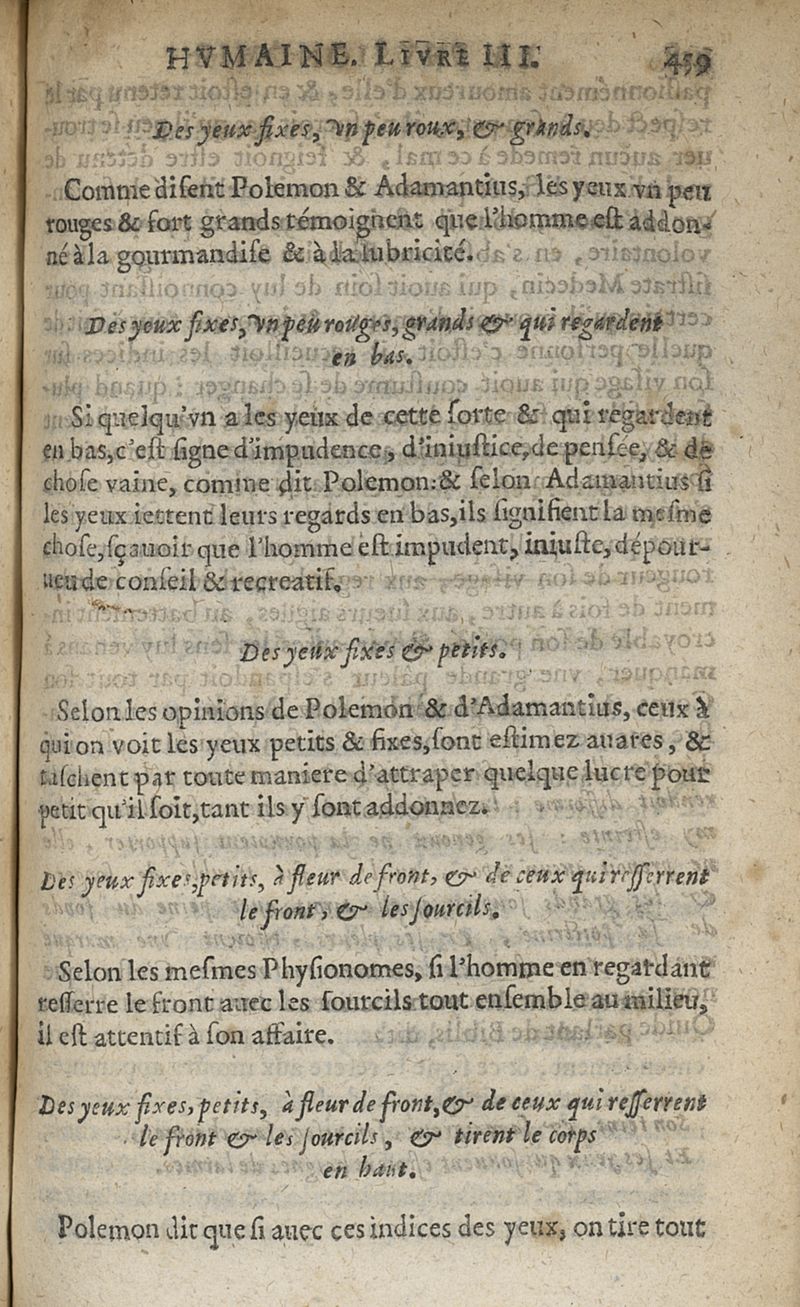 HVMAINE. LIVRE III. 459
Des yeux fixes, vn peu roux, & grands.
Comme diſent Polemon & Adamantius, les yeux vn peu
rouges & fort grands témoignent que l'homme eſt addon-
né à la gourmandiſe & à la lubricité.
Des yeux fixes, vn peu rouges, grands & qui regardent
en bas.
Si quelqu'vn a les yeux de cette ſorte & qui regardent
en bas, c'eſt ſigne d'impudence, d'iniuſtice, de penſée, & de
choſe vaine, comme dit Polemon: & ſelon Adamantius ſi
les yeux iettent leurs regards en bas, ils ſignifient la meſme
choſe, ſçauoir que l'homme eſt impudent, iniuſte, dépour-
ueu de conſeil & recreatif.
Des yeux fixes & petits.
Selon les opinions de Polemon & d'Adamantius, ceux à
qui on voit les yeux petits & fixes, ſont eſtimez auares, &
taſchent par toute maniere d'attraper quelque lucre pour
petit qu'il ſoit, tant ils y ſont addonnez.
Des yeux fixes, petits, à fleur de front, & de ceux qui reſſerrent
le front, & les ſourcils.
Selon les meſmes Phyſionomes, ſi l'homme en regardant
reſſerre le front auec les ſourcils tout enſemble au milieu,
il eſt attentif à ſon affaire.
Des yeux fixes, petits, à fleur de front, & de ceux qui reſſerrent
le front & les ſourcils, & tirent le corps
en haut.
Polemon dit que ſi auec ces indices des yeux, on tire tout